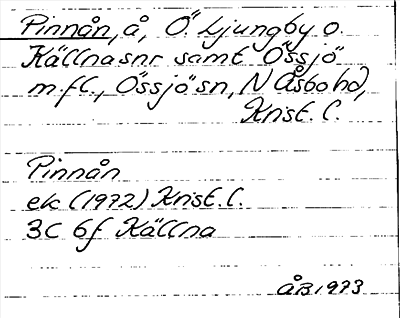 Pinnån, å, Ö. Ljungby o.
Källnasnr samt Össjö
m.fl., Össjö sn, N Åsbo hd,
Krist. l.
Pinnån
ek (1972) Krist. l.
3C 6f Källna
ÅB 1973